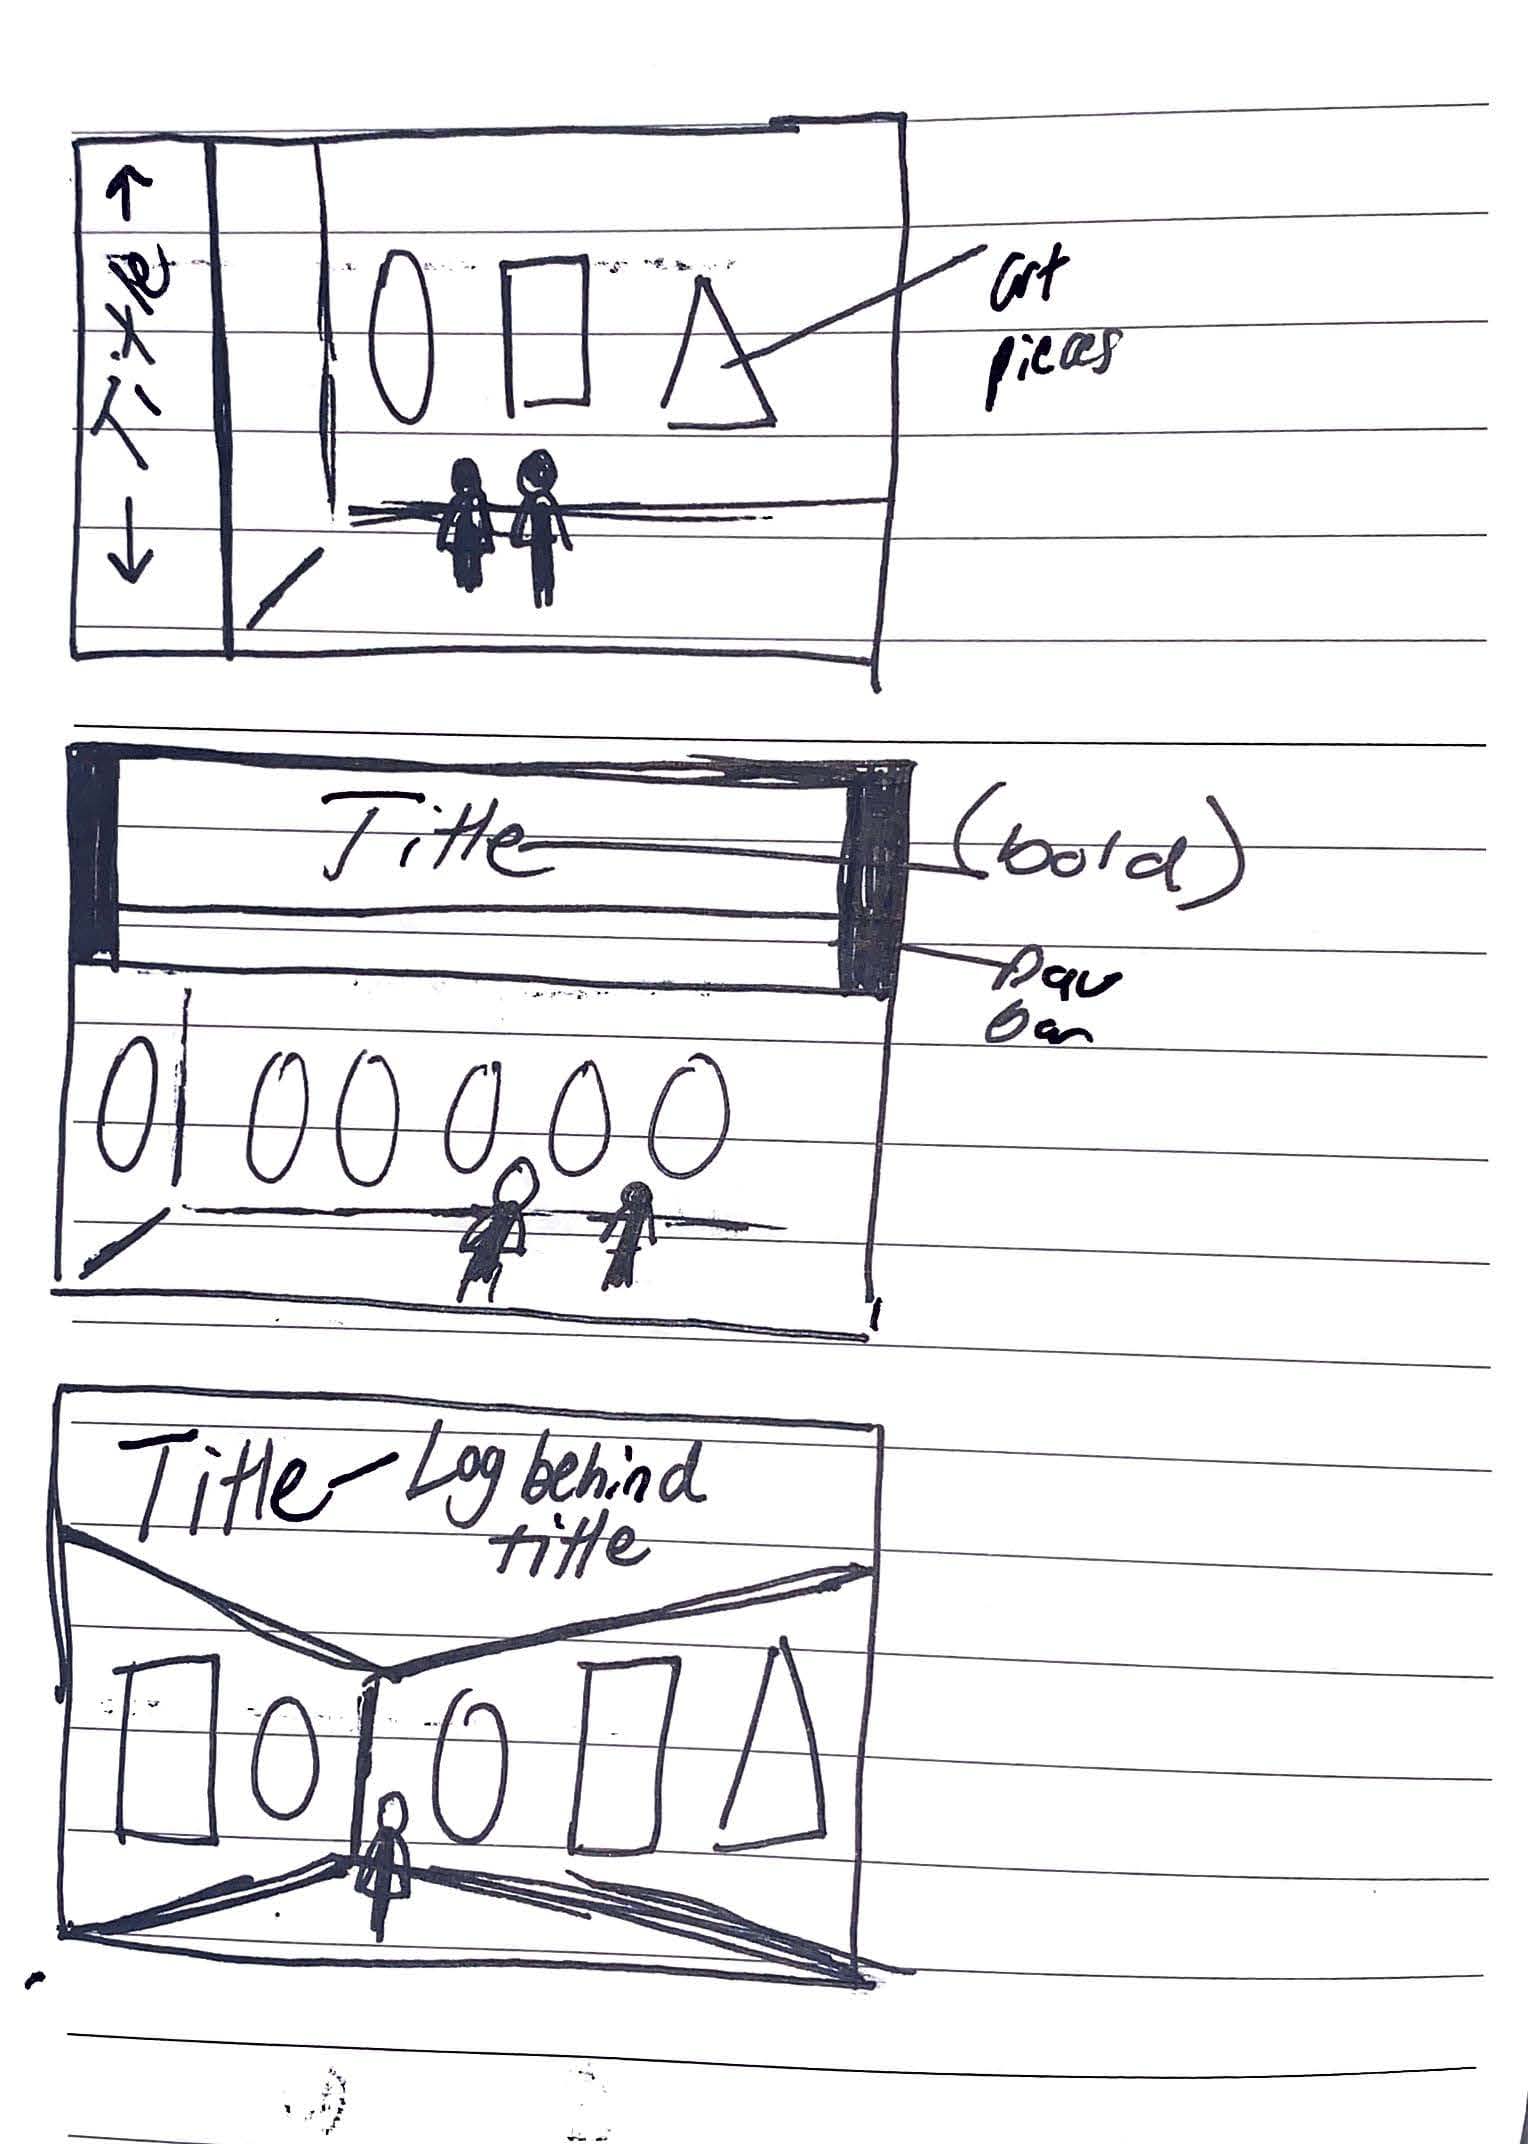 Title
art
pieces
Title
(bold)
Title
Log behind
title